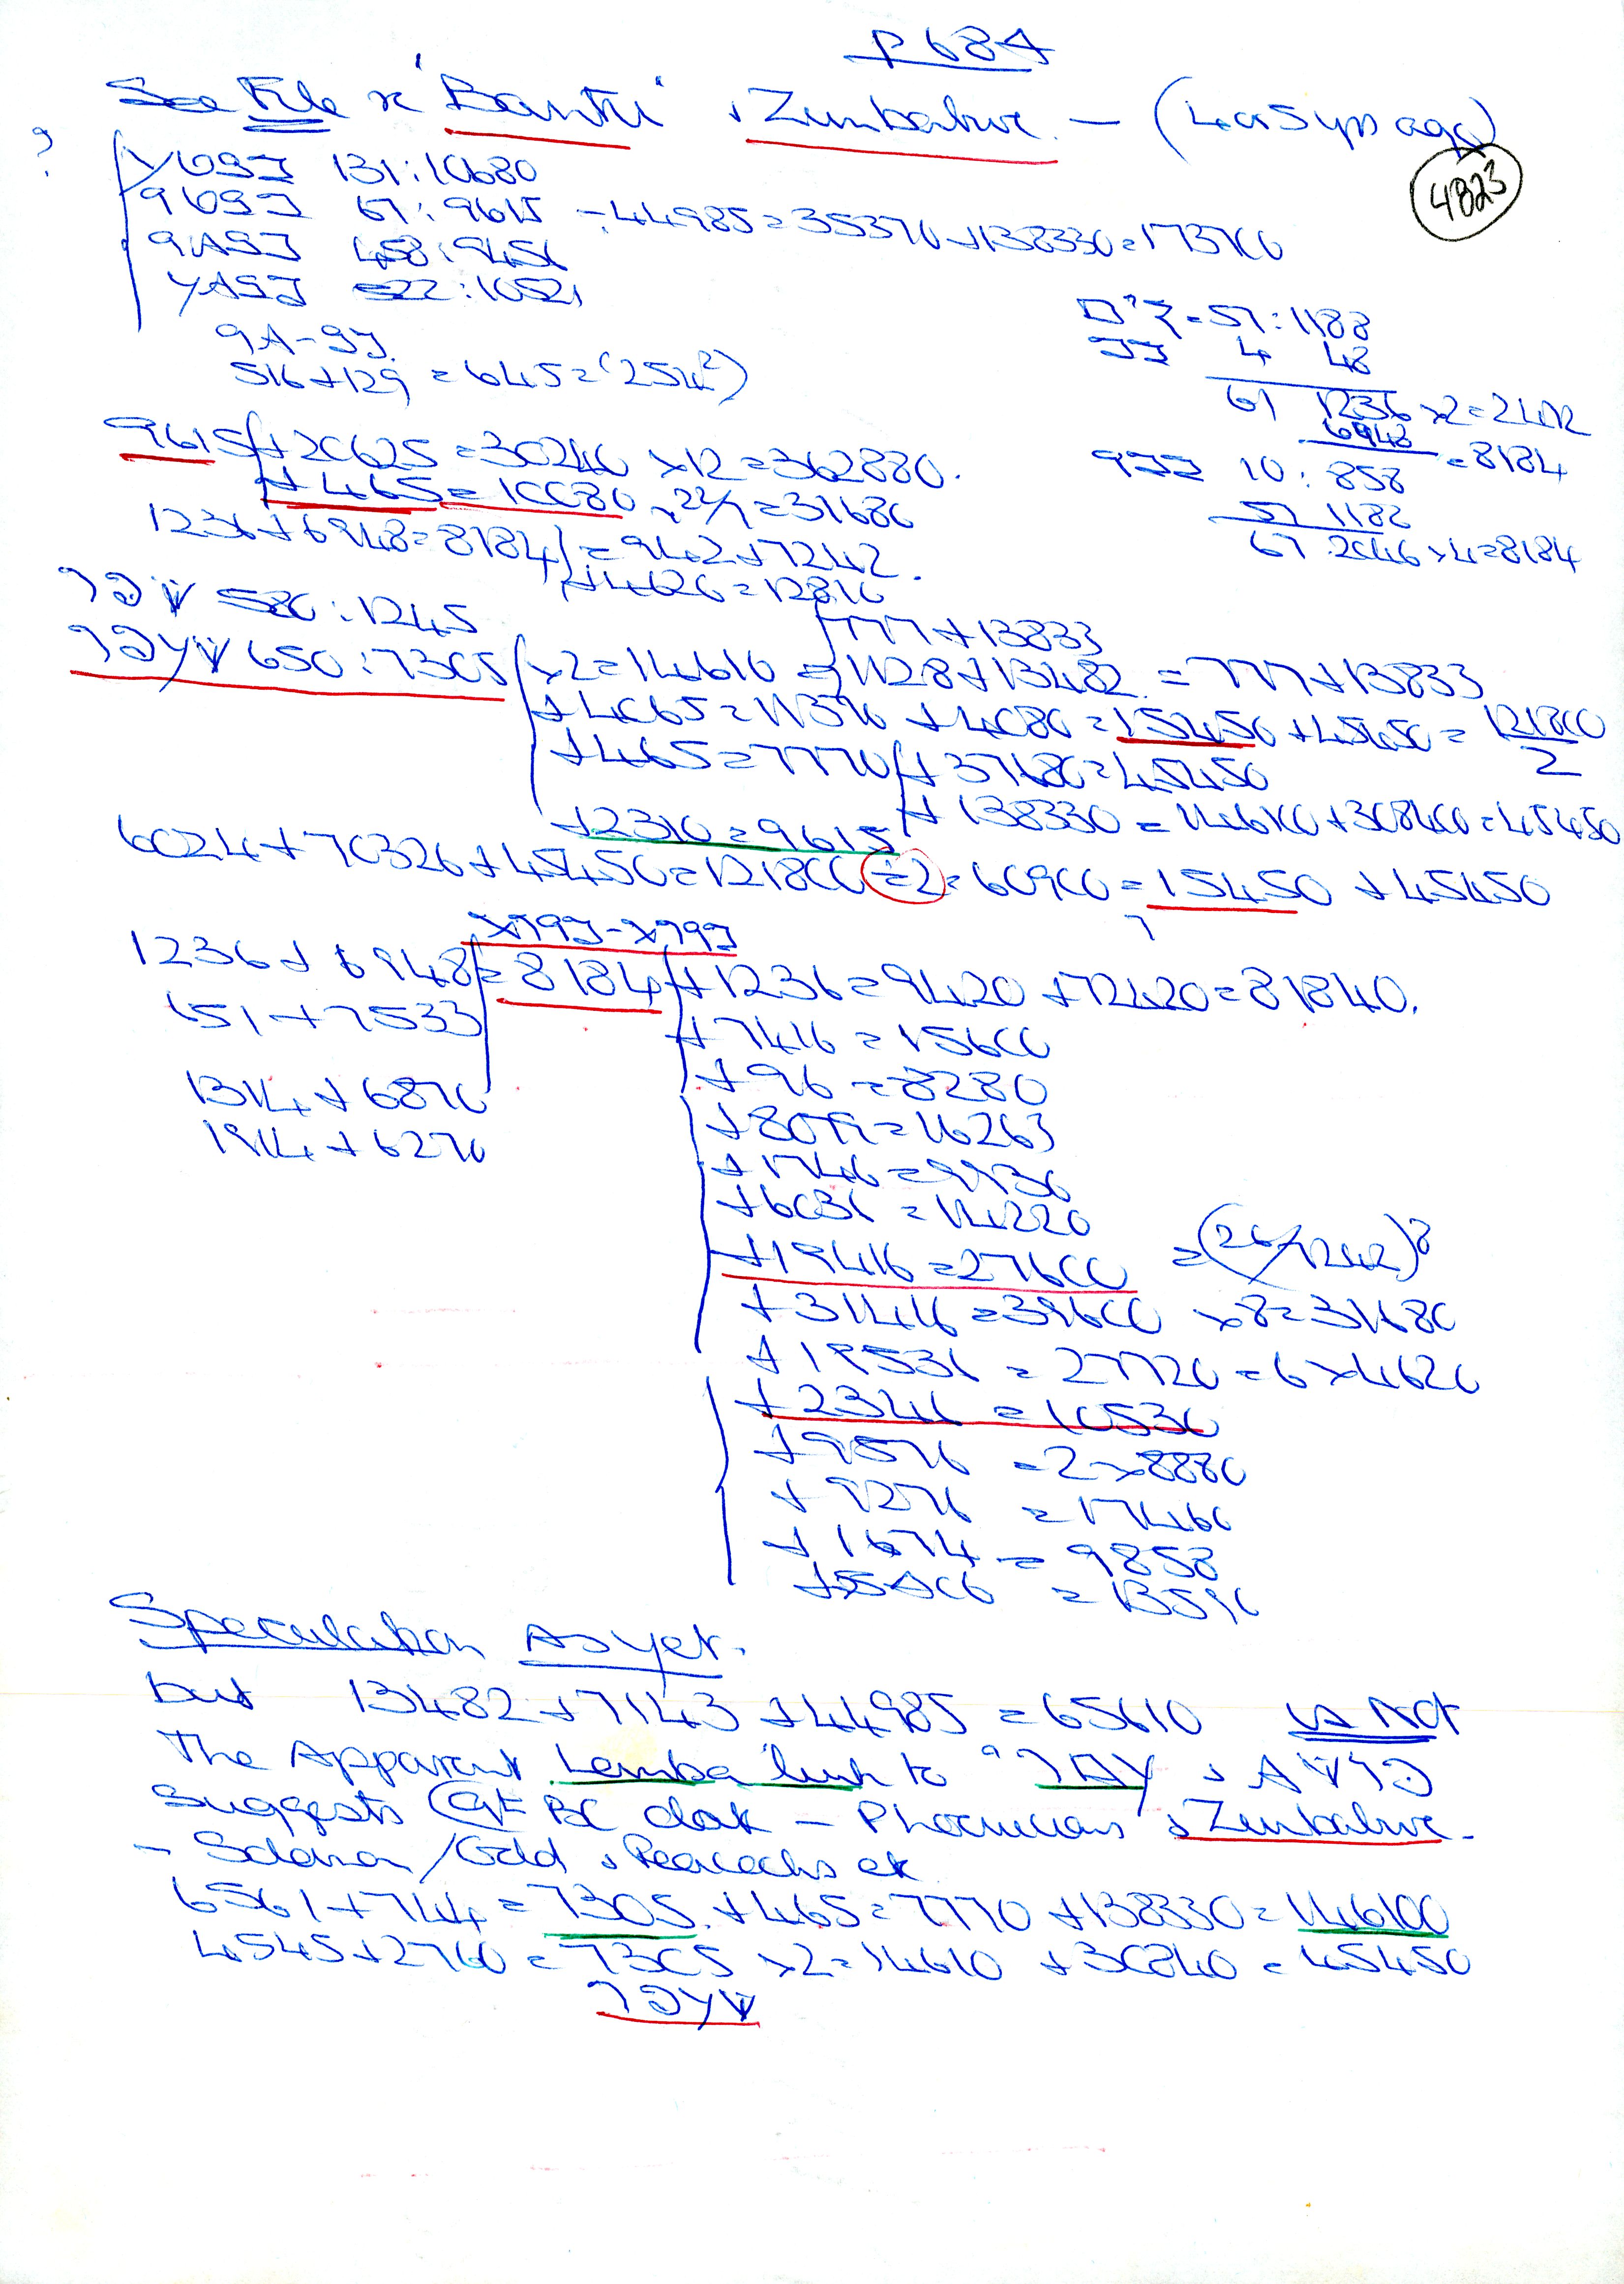 P 684
See File x 'Bantu' + Zimbabwe. — (4 or 5 yrs ago)
4823
?
131:10680
67:9615 - 44985=35370+138330=173700
458:9456
522:10521
516+129 = 645 = (254²)
= 57:1188
4 48
61 1236 x2=2472
6948 = 8184
10: 858
57 1188
67 2046 x4=8184
9615 + 20625 = 30240 x12 = 362880.
+ 465 = 10080 x 22/7 = 31680
1236+6948=8184 = 942+7242.
+4626=12810
580:1245
777+13833
650:7305 x2=14610 = 1128+13482 = 777+13833
+4065=11370 +4080=15450 +45450= 121800/2
+465=7770 + 37680=45450
+ 138330 = 146100+308400=454500
+2310=9615
6024+70326+45450=121800 ÷2= 60900 = 15450 + 45450
1236+6948 = 8184 + 1236=9420 +72420=81840.
651+7533
+7416 = 15600
+96 = 8280
1314+6870
+8079=16263
1914+6270
+1746=9930
+6036 = 14220
+19416=27600 = (26/1242)8
+31416=39600 x8=31680
+19536 = 27720 = 6x4620
+2346 = 10530
+9576 = 2x8880
+9276 = 17460
+1674 = 9858
= 13590
Speculation As yet.
but 13482+7143+44985 = 65610 is Not
The Apparent Lemba link to
Suggests C9th BC date — Phoenicians + Zimbabwe.
— Solomon/Gold + Peacocks etc
6561+744 = 7305 +465=7770 +138330=146100
4545+2760 = 7305 x2=14610 +30840 = 45450